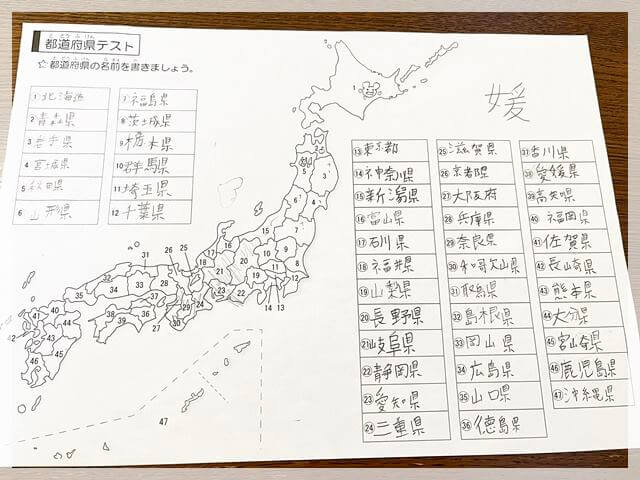 都道府県テスト
☆都道府県の名前を書きましょう。
① 北海道
② 青森県
3 岩手県
4 宮城県
5 秋田県
6 山形県
⑦ 福島県
8 茨城県
9 栃木県
10 群馬県
11 埼玉県
12 千葉県
媛
⑬ 東京都
⑭ 神奈川県
⑮ 新潟県
⑯ 富山県
⑰ 石川県
⑱ 福井県
⑲ 山梨県
⑳ 長野県
㉑ 岐阜県
㉒ 静岡県
㉓ 愛知県
㉔ 三重県
㉕ 滋賀県
㉖ 京都
㉗ 大阪府
㉘ 兵庫県
㉙ 奈良県
㉚ 和歌山県
㉛ 取県
㉜ 島根県
㉝ 岡山県
㉞ 広島県
㉟ 山口県
㊱ 徳島県
㊲ 香川県
㊳ 愛媛県
㊴ 高知県
㊵ 福岡県
㊶ 佐賀県
㊷ 長崎県
㊸ 熊本県
㊹ 大分県
㊺ 宮崎県
㊻ 鹿児島県
㊼ 沖縄県
47